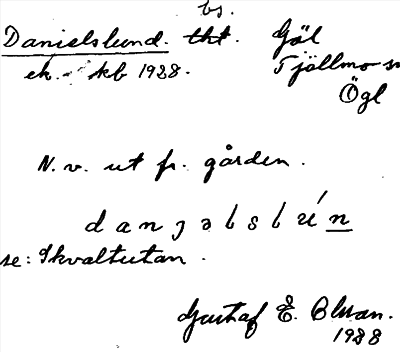 bs.
Danielslund. tht. Göl
ek. kb 1928. Tjällmo sn
Ögl
N. v. ut fr. gården.
d a n ɟ ə l s l ú n
se: Skvaltutan.
Gustaf E. Olsson.
1928